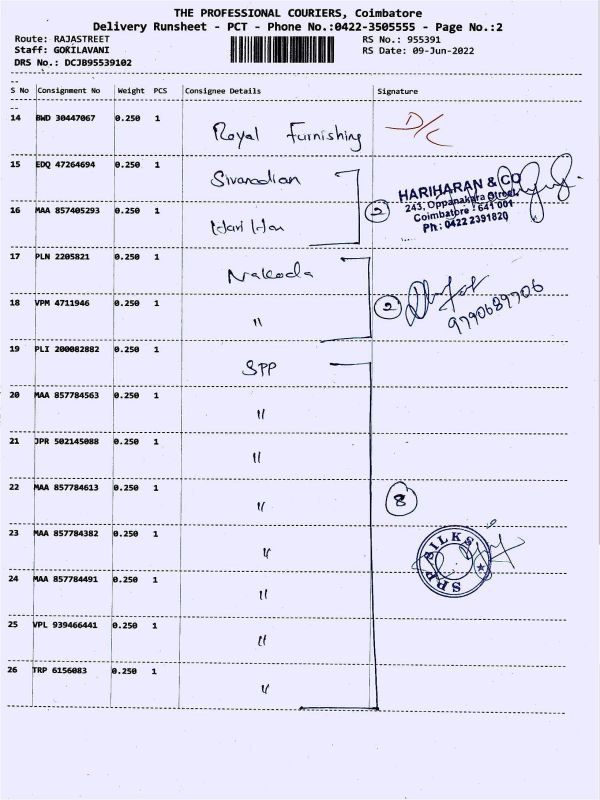 THE PROFESSIONAL COURIERS, Coimbatore
Delivery Runsheet - PCT - Phone No.:0422-3505555 - Page No.:2
Route: RAJASTREET RS No.: 955391
Staff: GOKILAVANI RS Date: 09-Jun-2022
DRS No.: DCJB95539102
S No Consignment No Weight PCS Consignee Details Signature
14 BWD 30447067 0.250 1 Royal Furnishing D/C
15 EDQ 47264694 0.250 1
HARIHARAN & CO
243, Oppanakara Street,
Coimbatore - 641 001
Ph : 0422 2391820
16 MAA 857405293 0.250 1 Hari Han 2
17 PLN 2205821 0.250 1 Nakoda
18 VPM 4711946 0.250 1 " 2 9790689706
19 PLI 200082882 0.250 1 SPP
20 MAA 857784563 0.250 1 "
21 JPR 502145088 0.250 1 "
22 MAA 857784613 0.250 1 " 8
23 MAA 857784382 0.250 1 "
SPP SILKS
24 MAA 857784491 0.250 1 "
25 VPL 939466441 0.250 1 "
26 TRP 6156083 0.250 1 "